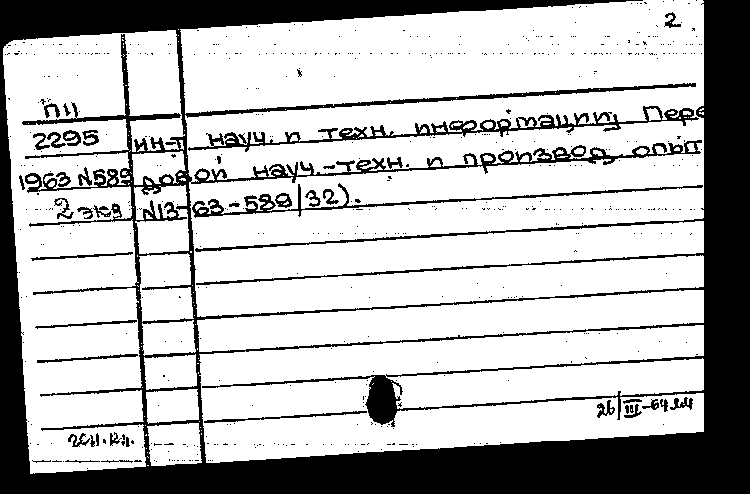 2
П11
2295 ин-т науч. и техн. информации Пере
1963 N589 довой науч.-техн. и производ. опыт
2 экз N13-63-589/32).
26/III-64